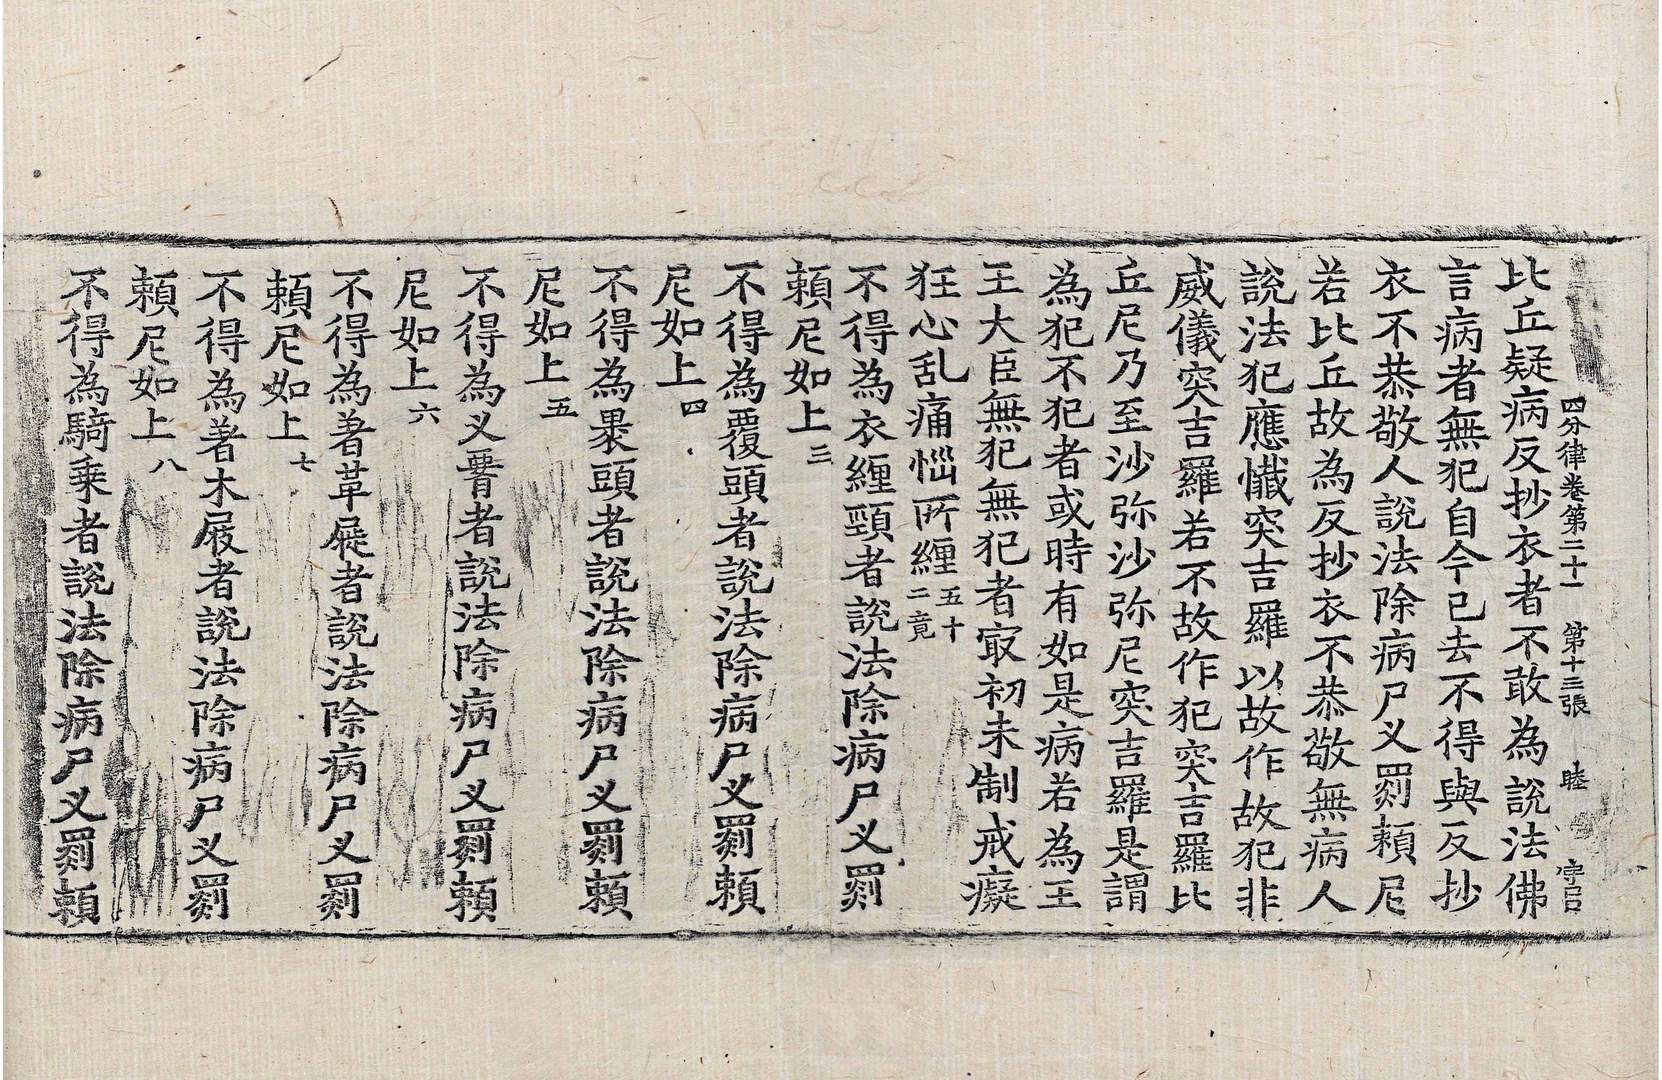 四分律卷第二十一 第十三張 睦
比丘疑病反抄衣者不敢為說法佛
言病者無犯自今已去不得與反抄
衣不恭敬人說法除病尸叉罽賴尼
若比丘故為反抄衣不恭敬無病人
說法犯應懺突吉羅以故作故犯非
威儀突吉羅若不故作犯突吉羅比
丘尼乃至沙弥沙弥尼突吉羅是謂
為犯不犯者或時有如是病若為王
王大臣無犯無犯者㝡初未制戒癡
狂心乱痛惱所纏五十二竟
不得為衣纏頸者說法除病尸叉罽
賴尼如上三
不得為覆頭者說法除病尸叉罽賴
尼如上四
不得為裹頭者說法除病尸叉罽賴
尼如上五
不得為叉𦝫者說法除病尸叉罽賴
尼如上六
不得為著革屣者說法除病尸叉罽
賴尼如上七
不得為著木屐者說法除病尸叉罽
賴尼如上八
不得為騎乘者說法除病尸叉罽賴